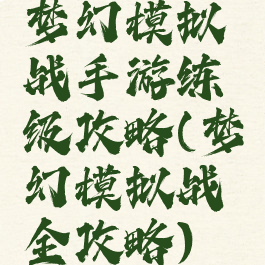 梦幻模拟
战手游练
级攻略(梦
幻模拟战
全攻略)